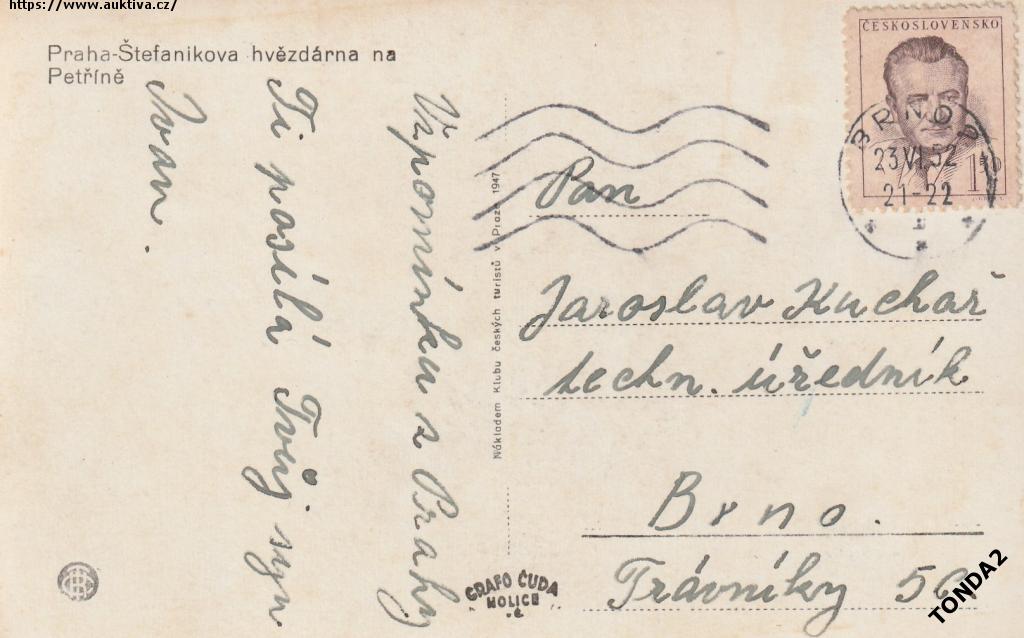 https://www.auktiva.cz/
Praha-Štefanikova hvězdárna na
Petříně
Vzpomínku z Prahy
Ti posílá Tvůj syn
Ivan.
Nákladem Klubu českých turistů v Praze 1947
ČESKOSLOVENSKO
BRNO
23.VI.52
21-22
Pan
Jaroslav Kuchař
techn. úředník
Brno.
Trávníky
GRAFO ČUDA
HOLICE
TONDA2